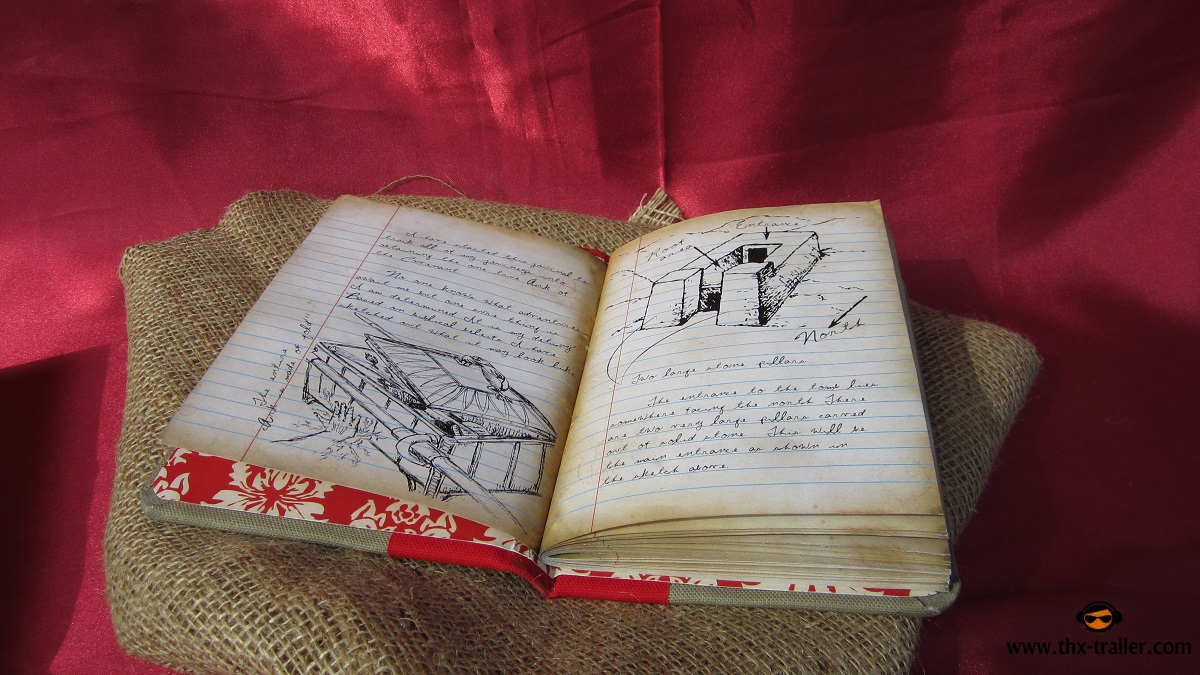 I have started this journal to
track all of my journeys into
obtaining the one true Ark of
the Covenant
No one knows what adventures
await me but one more thing
I am determined
Based on biblical I have
sketched out what it may look like
The entire
made of gold"
Root
Entrance
North
Two large stone pillars
The entrance to the tomb lies
somewhere facing the north There
are two very large pillars carved
out of solid stone This will be
the main entrance as shown in
the sketch above.
www.thx-trailer.com